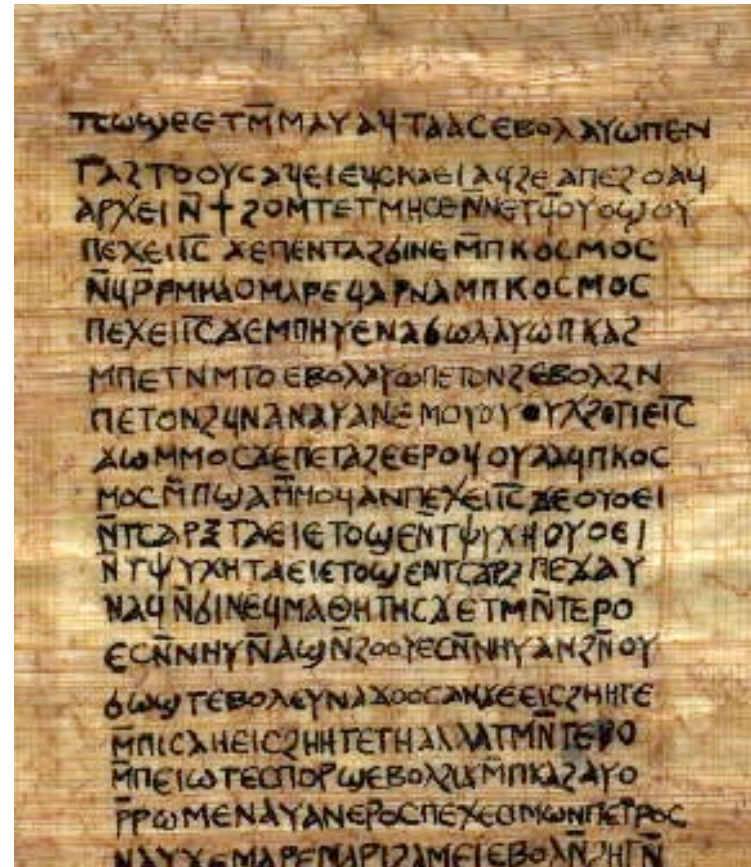 ⲡⲥⲱϣⲉⲉⲧⲙ̅ⲙⲁⲩⲁϥⲧⲁⲁⲥⲉⲃⲟⲗⲁⲩⲱⲡⲉⲛ
ⲧⲁϩⲧⲟⲟⲩⲥⲁϥⲉⲓⲉϥⲥⲕⲁⲉⲓⲁϥϩⲉⲁⲡⲉϩⲟⲁϥ
ⲁⲣⲭⲉⲓⲛ̅ϯϩⲟⲙⲧⲉⲧⲙⲏⲥⲉⲛ̅ⲛⲉⲧϥⲟⲩⲟϣⲟⲩ
ⲡⲉϫⲉⲓⲥ̅ϫⲉⲡⲉⲛⲧⲁϩϭⲓⲛⲉⲙ̅ⲡⲕⲟⲥⲙⲟⲥ
ⲛ̅ϥⲣ̅ⲣⲙⲙⲁⲟⲙⲁⲣⲉϥⲁⲣⲛⲁⲙⲡⲕⲟⲥⲙⲟⲥ
ⲡⲉϫⲉⲓⲥ̅ϫⲉⲙⲡⲏⲩⲉⲛⲁϭⲱⲗⲁⲩⲱⲡⲕⲁϩ
ⲙⲡⲉⲧⲛⲙⲧⲟⲉⲃⲟⲗⲁⲩⲱⲡⲉⲧⲟⲛϩⲉⲃⲟⲗϩⲛ
ⲡⲉⲧⲟⲛϩϥⲛⲁⲛⲁⲩⲁⲛⲉⲙⲟⲩⲟⲩⲭϩⲟⲧⲓⲉⲓⲥ̅
ϫⲱⲙⲙⲟⲥϫⲉⲡⲉⲧⲁϩⲉⲉⲣⲟϥⲟⲩⲁⲁϥⲡⲕⲟⲥ
ⲙⲟⲥⲙ̅ⲡϣⲁⲙ̅ⲙⲟϥⲁⲛⲡⲉϫⲉⲓⲥ̅ϫⲉⲟⲩⲟⲉⲓ
ⲛ̅ⲧⲥⲁⲣⲝⲧⲁⲉⲓⲉⲧⲟϣⲉⲛ̅ⲧⲯⲩⲭⲏⲟⲩⲟⲉⲓ
ⲛ̅ⲧⲯⲩⲭⲏⲧⲁⲉⲓⲉⲧⲟϣⲉⲛⲧⲥⲁⲣⲝⲡⲉϫⲁⲩ
ⲛⲁϥⲛ̅ϭⲓⲛⲉϥⲙⲁⲑⲏⲧⲏⲥϫⲉⲧⲙⲛ̅ⲧⲉⲣⲟ
ⲉⲥⲛ̅ⲛⲏⲩⲛ̅ⲁϣⲛ̅ϩⲟⲟⲩⲉⲥⲛ̅ⲛⲏⲩⲁⲛϩⲛ̅ⲟⲩ
ϭⲱϣⲧⲉⲃⲟⲗⲉⲩⲛⲁϫⲟⲟⲥⲁⲛϫⲉⲉⲓⲥϩⲏⲏⲧⲉ
ⲙ̅ⲡⲓⲥⲁⲏⲉⲓⲥϩⲏⲏⲧⲉⲧⲏⲁⲗⲗⲁⲧⲙⲛ̅ⲧⲉⲣⲟ
ⲙ̅ⲡⲉⲓⲱⲧⲉⲥⲡⲟⲣϣⲉⲃⲟⲗϩⲓϫⲙ̅ⲡⲕⲁϩⲁⲩⲱ
ⲣ̅ⲣⲱⲙⲉⲛⲁⲩⲁⲛⲉⲣⲟⲥⲡⲉϫⲉⲥⲓⲙⲱⲛⲡⲉⲧⲣⲟⲥ
ⲛⲁⲩϫⲉⲙⲁⲣⲉⲙⲁⲣⲓϩⲁⲙⲉⲓⲉⲃⲟⲗⲛ̅ϩⲏⲧⲛ̅